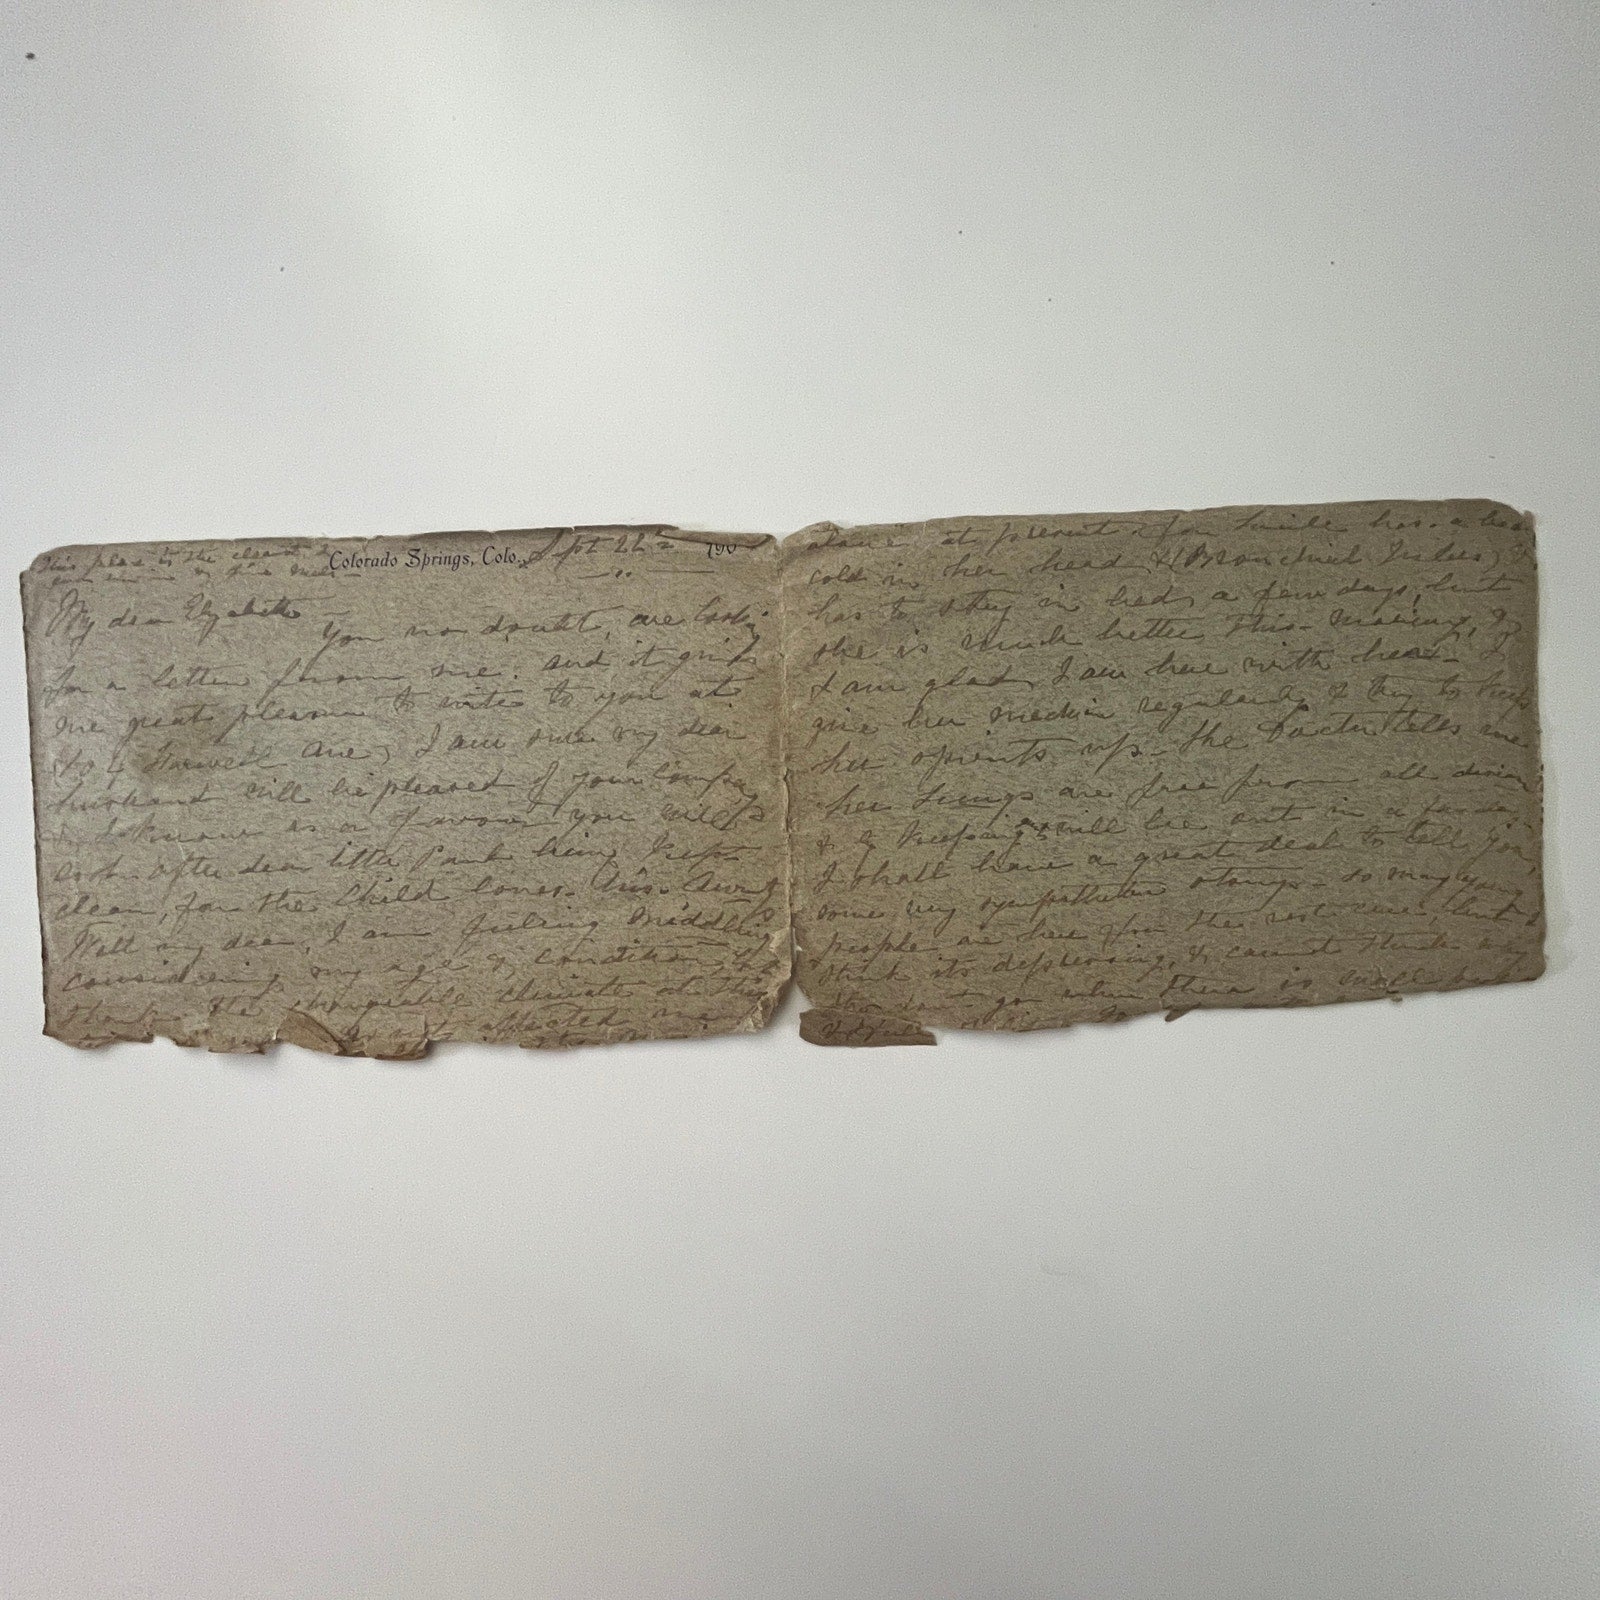 This place is the cleanest I
Colorado Springs, Colo., Sept 22nd 190
My dear Elizabeth
You no doubt, are looking
for a letter from me: and it gives
me great pleasure to write to you at
4 Farwell Ave, I am sure my dear
husband will be pleased of your Company
& I know as a favor you will
look after dear little Paul being Kept
clean, for the Child loves his Aunt
Well my dear, I am feeling middling
considering my age & condition,
thank the changeable climate at this
not affected me
alone at present, for Lucile has a bad
cold in her head & (Bronchial Tubes) &
has to stay in bed, a few days, but
she is much better this morning, &
I am glad, I am here with her I
give her medicine regularly & try to keep
her spirits up. The Doctor tells me
her Lungs are free from all disease
& if Keeping will be out in a few days
I shall have a great deal to tell You,
some very sympathetic storys so many young
people are here for the rest cure, but I
think its depressing, & cannot think why
go when there is